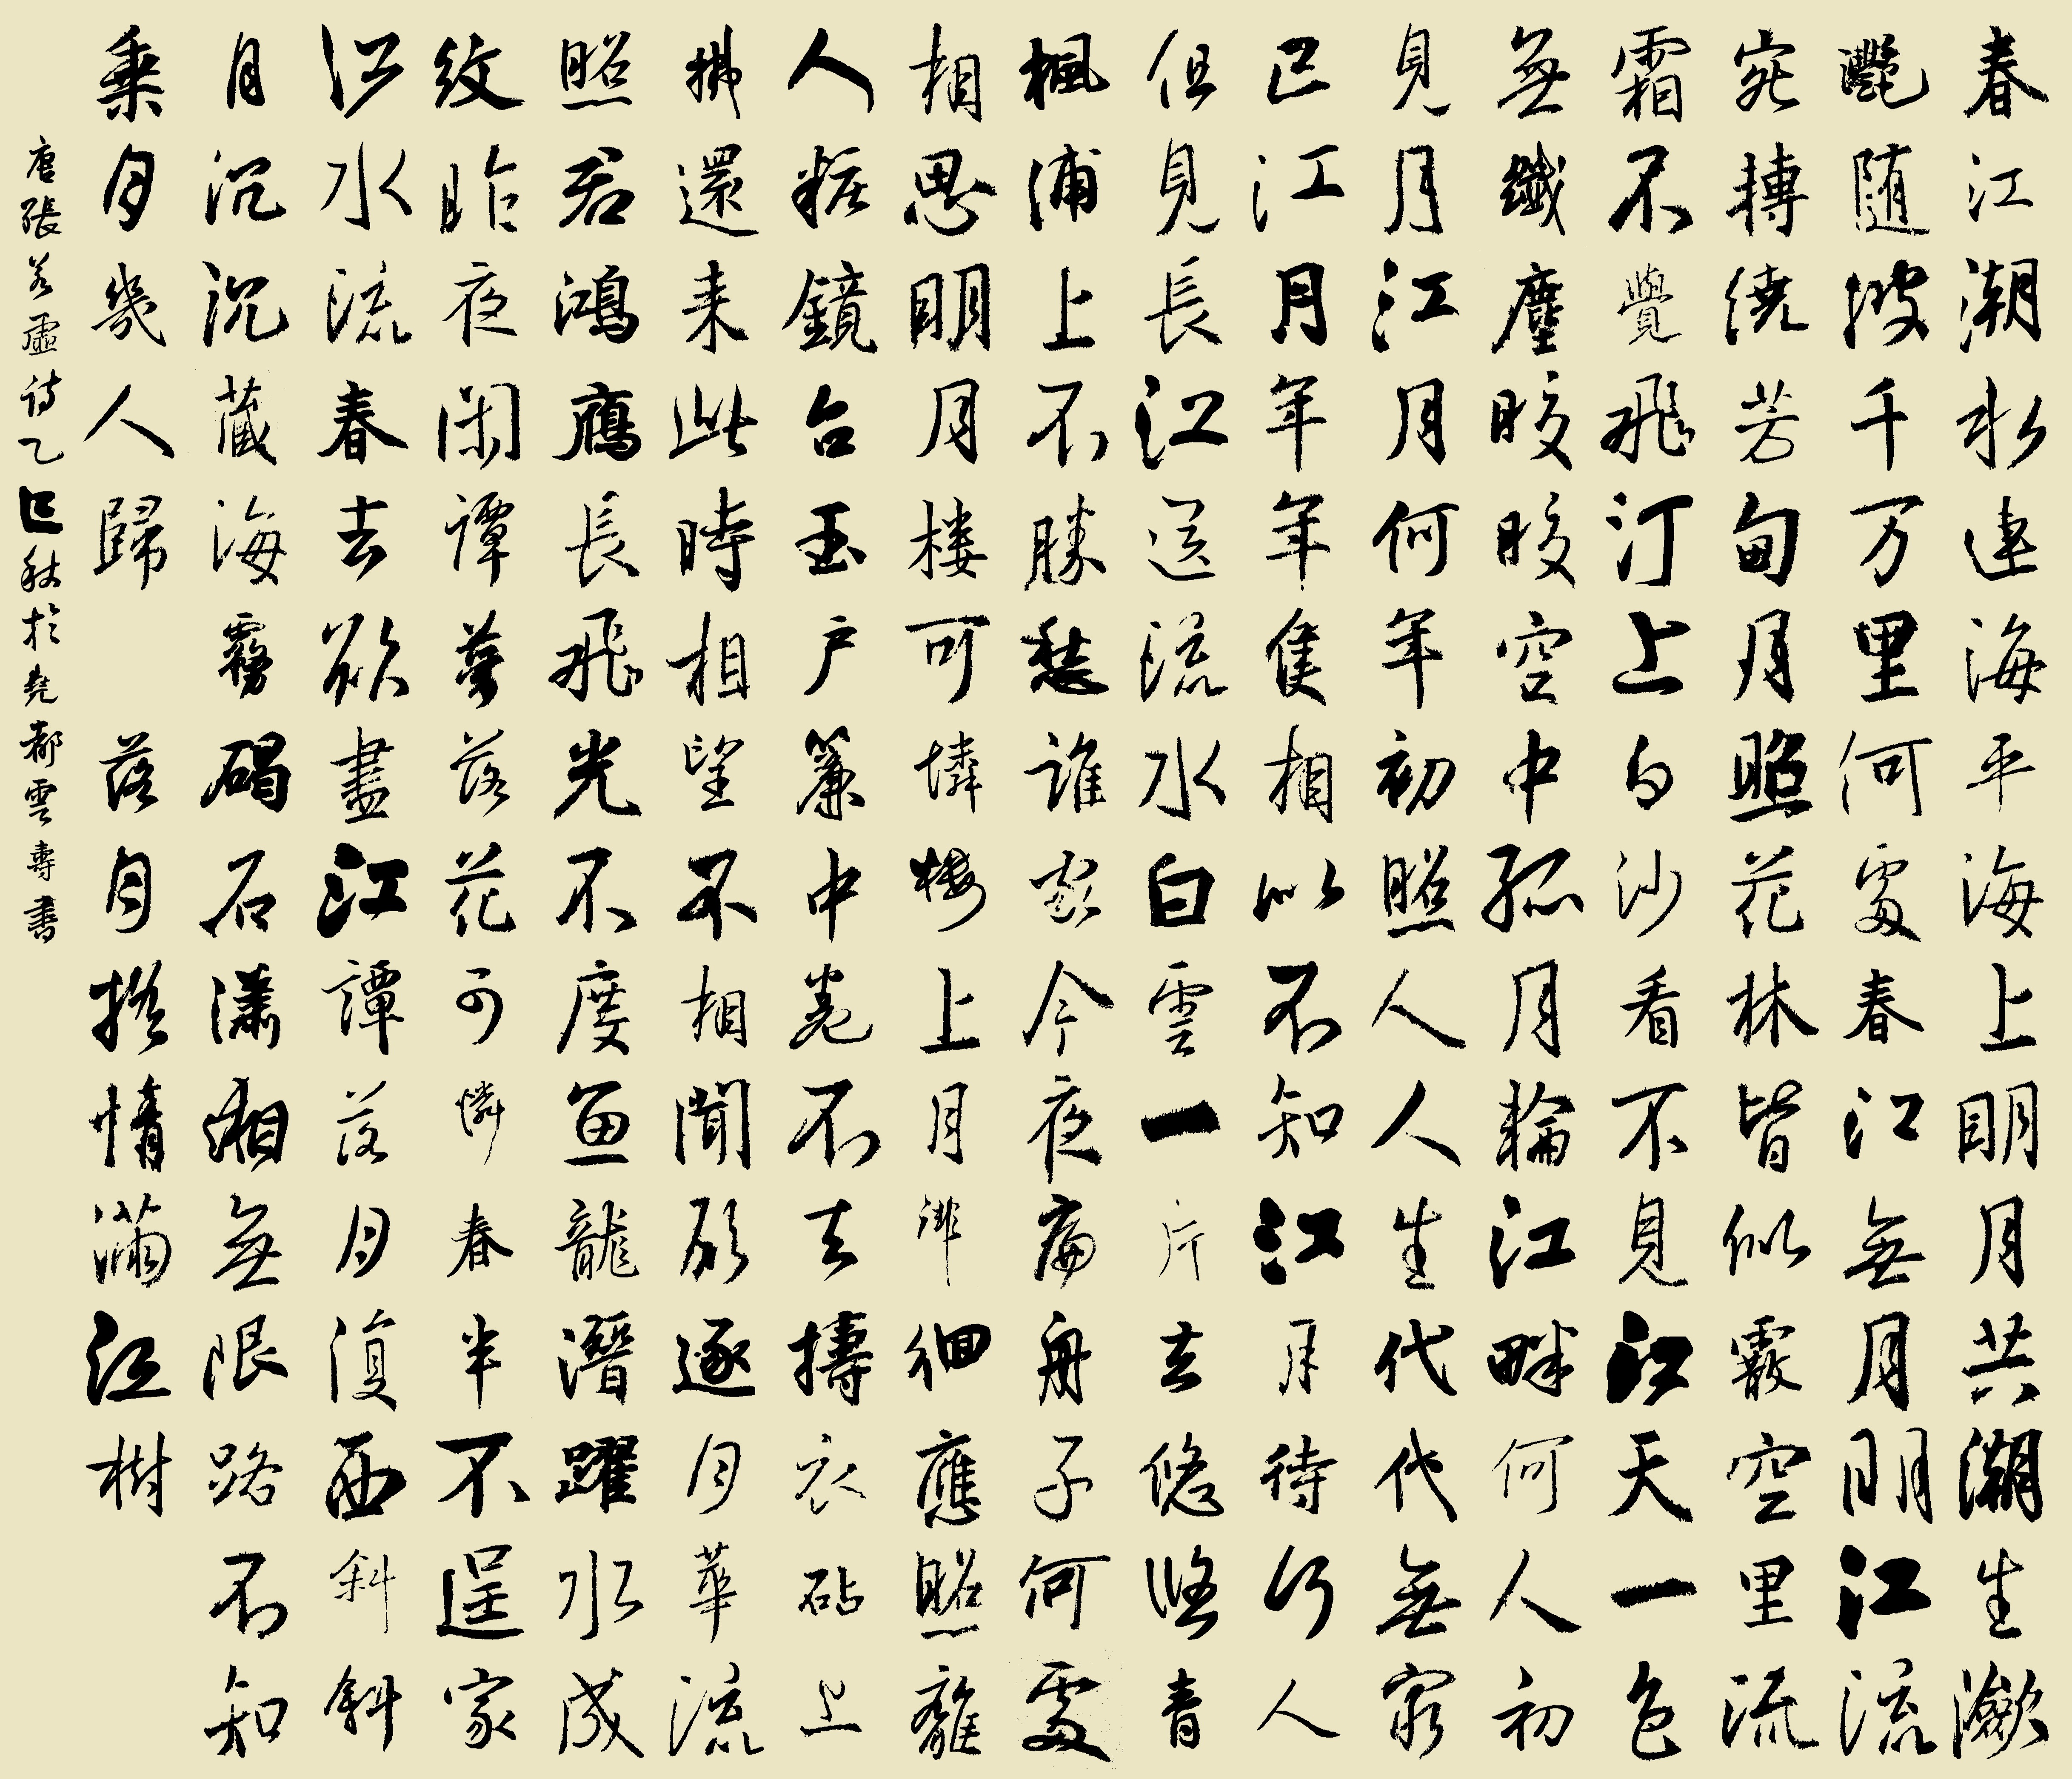 春江潮水連海平海上明月共潮生瀲
灔随波千万里何處春江無月明江流
宛轉繞芳甸月照花林皆似霰空里流
霜不覺飛汀上白沙看不見江天一色
無纖塵皎皎空中孤月輪江畔何人初
見月江月何年初照人人生代代無窮
已江月年年隻相似不知江月待何人
但見長江送流水白雲一片去悠悠青
楓浦上不勝愁誰家今夜扁舟子何處
相思明月楼可憐楼上月徘徊應照離
人粧鏡台玉户簾中卷不去擣衣砧上
拂還来此時相望不相聞願逐月華流
照君鴻鴈長飛光不度魚龍潛躍水成
紋昨夜閑譚夢落花可憐春半不還家
江水流春去欲盡江譚落月復西斜斜
月沉沉藏海霧碣石瀟湘無限路不知
乘月幾人歸 落月摇情滿江樹
唐張若虛詩乙巳秋於堯都雲壽書